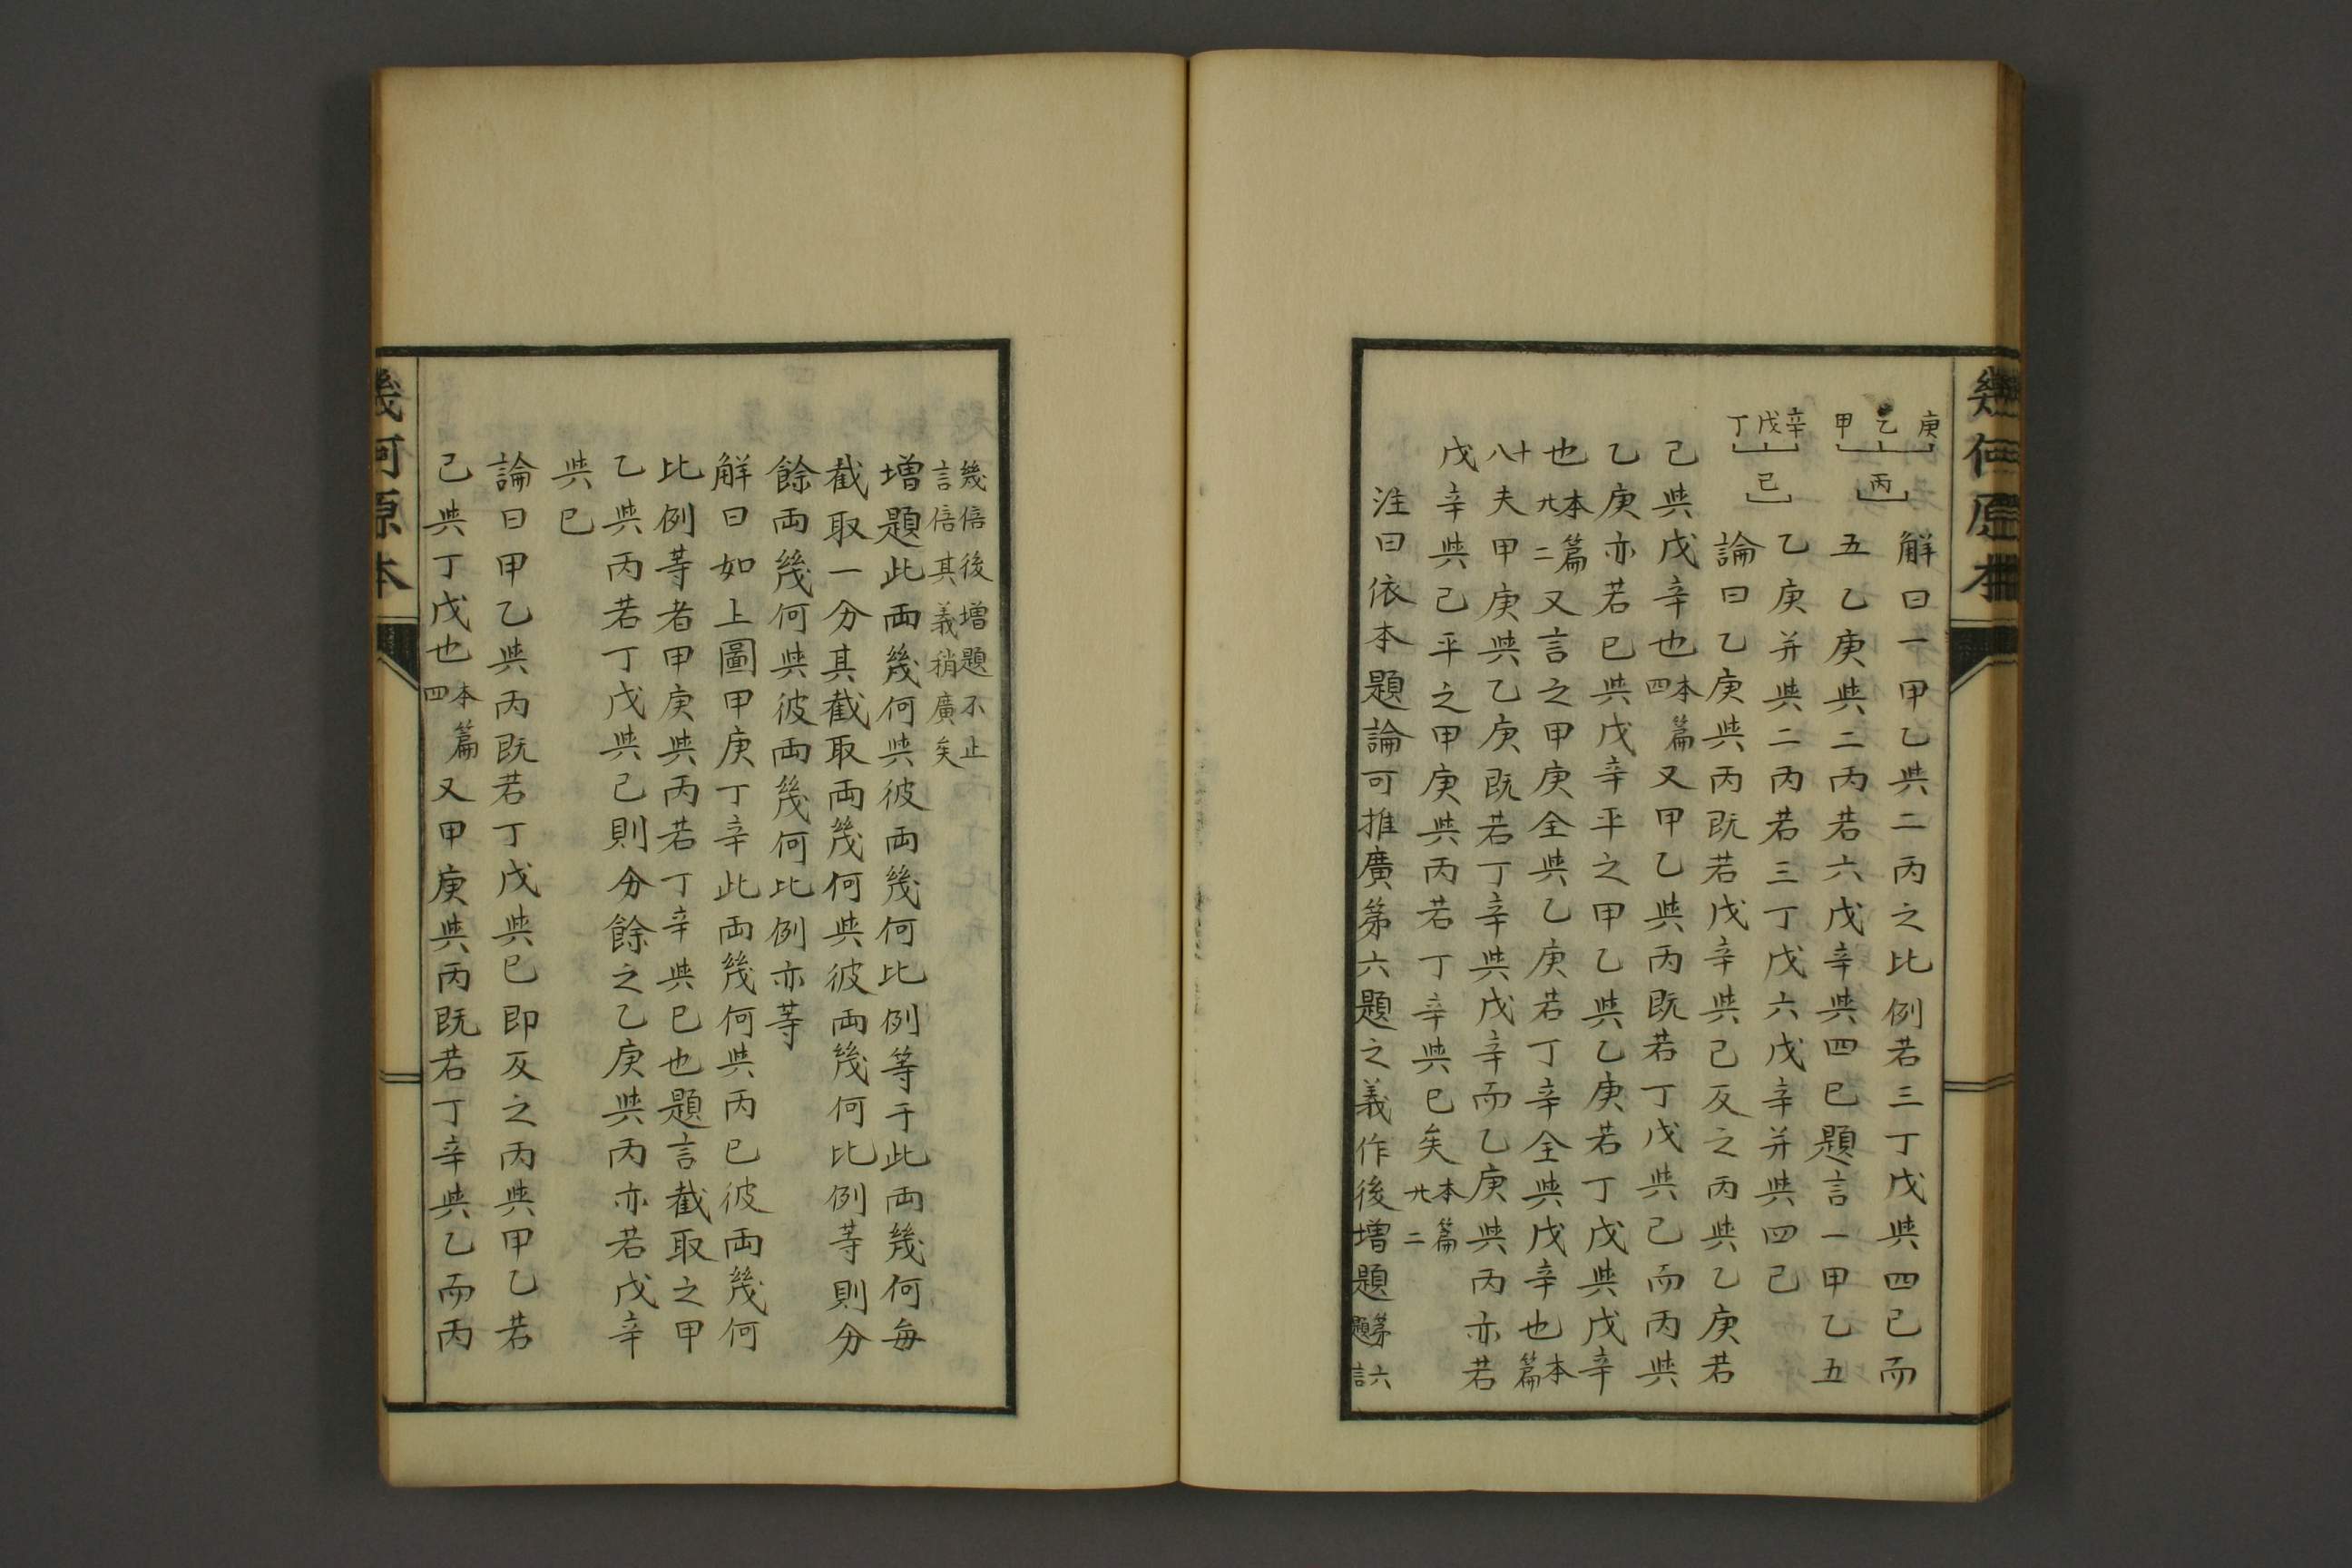 幾何原本
庚
乙
甲
丙
辛
戊
丁
己
解曰一甲乙與二丙之比例若三丁戊與四己而
五乙庚與二丙若六戊辛與四巳題言一甲乙五
乙庚并與二丙若三丁戊六戊辛并與四己
論曰乙庚與丙既若戊辛與己反之丙與乙庚若
己與戊辛也本篇四又甲乙與丙既若丁戊與己而丙與
乙庚亦若巳與戊辛平之甲乙與乙庚若丁戊與戊辛
也本篇廿二又言之甲庚全與乙庚若丁辛全與戊辛也本篇
十八夫甲庚與乙庚既若丁辛與戊辛而乙庚與丙亦若
戊辛與己平之甲庚與丙若丁辛與巳矣本篇廿二
注曰依本題論可推廣第六題之義作後增題第六題言
幾倍後增題不止
言倍其義稍廣矣
增題此兩幾何與彼兩幾何比例等于此兩幾何每
截取一分其截取兩幾何與彼兩幾何比例等則分
餘兩幾何與彼兩幾何比例亦等
解曰如上圖甲庚丁辛此兩幾何與丙巳彼兩幾何
比例等者甲庚與丙若丁辛與巳也題言截取之甲
乙與丙若丁戊與己則分餘之乙庚與丙亦若戊辛
與巳
論曰甲乙與丙既若丁戊與巳即反之丙與甲乙若
己與丁戊也本篇四又甲庚與丙既若丁辛與乙而丙
幾何原本